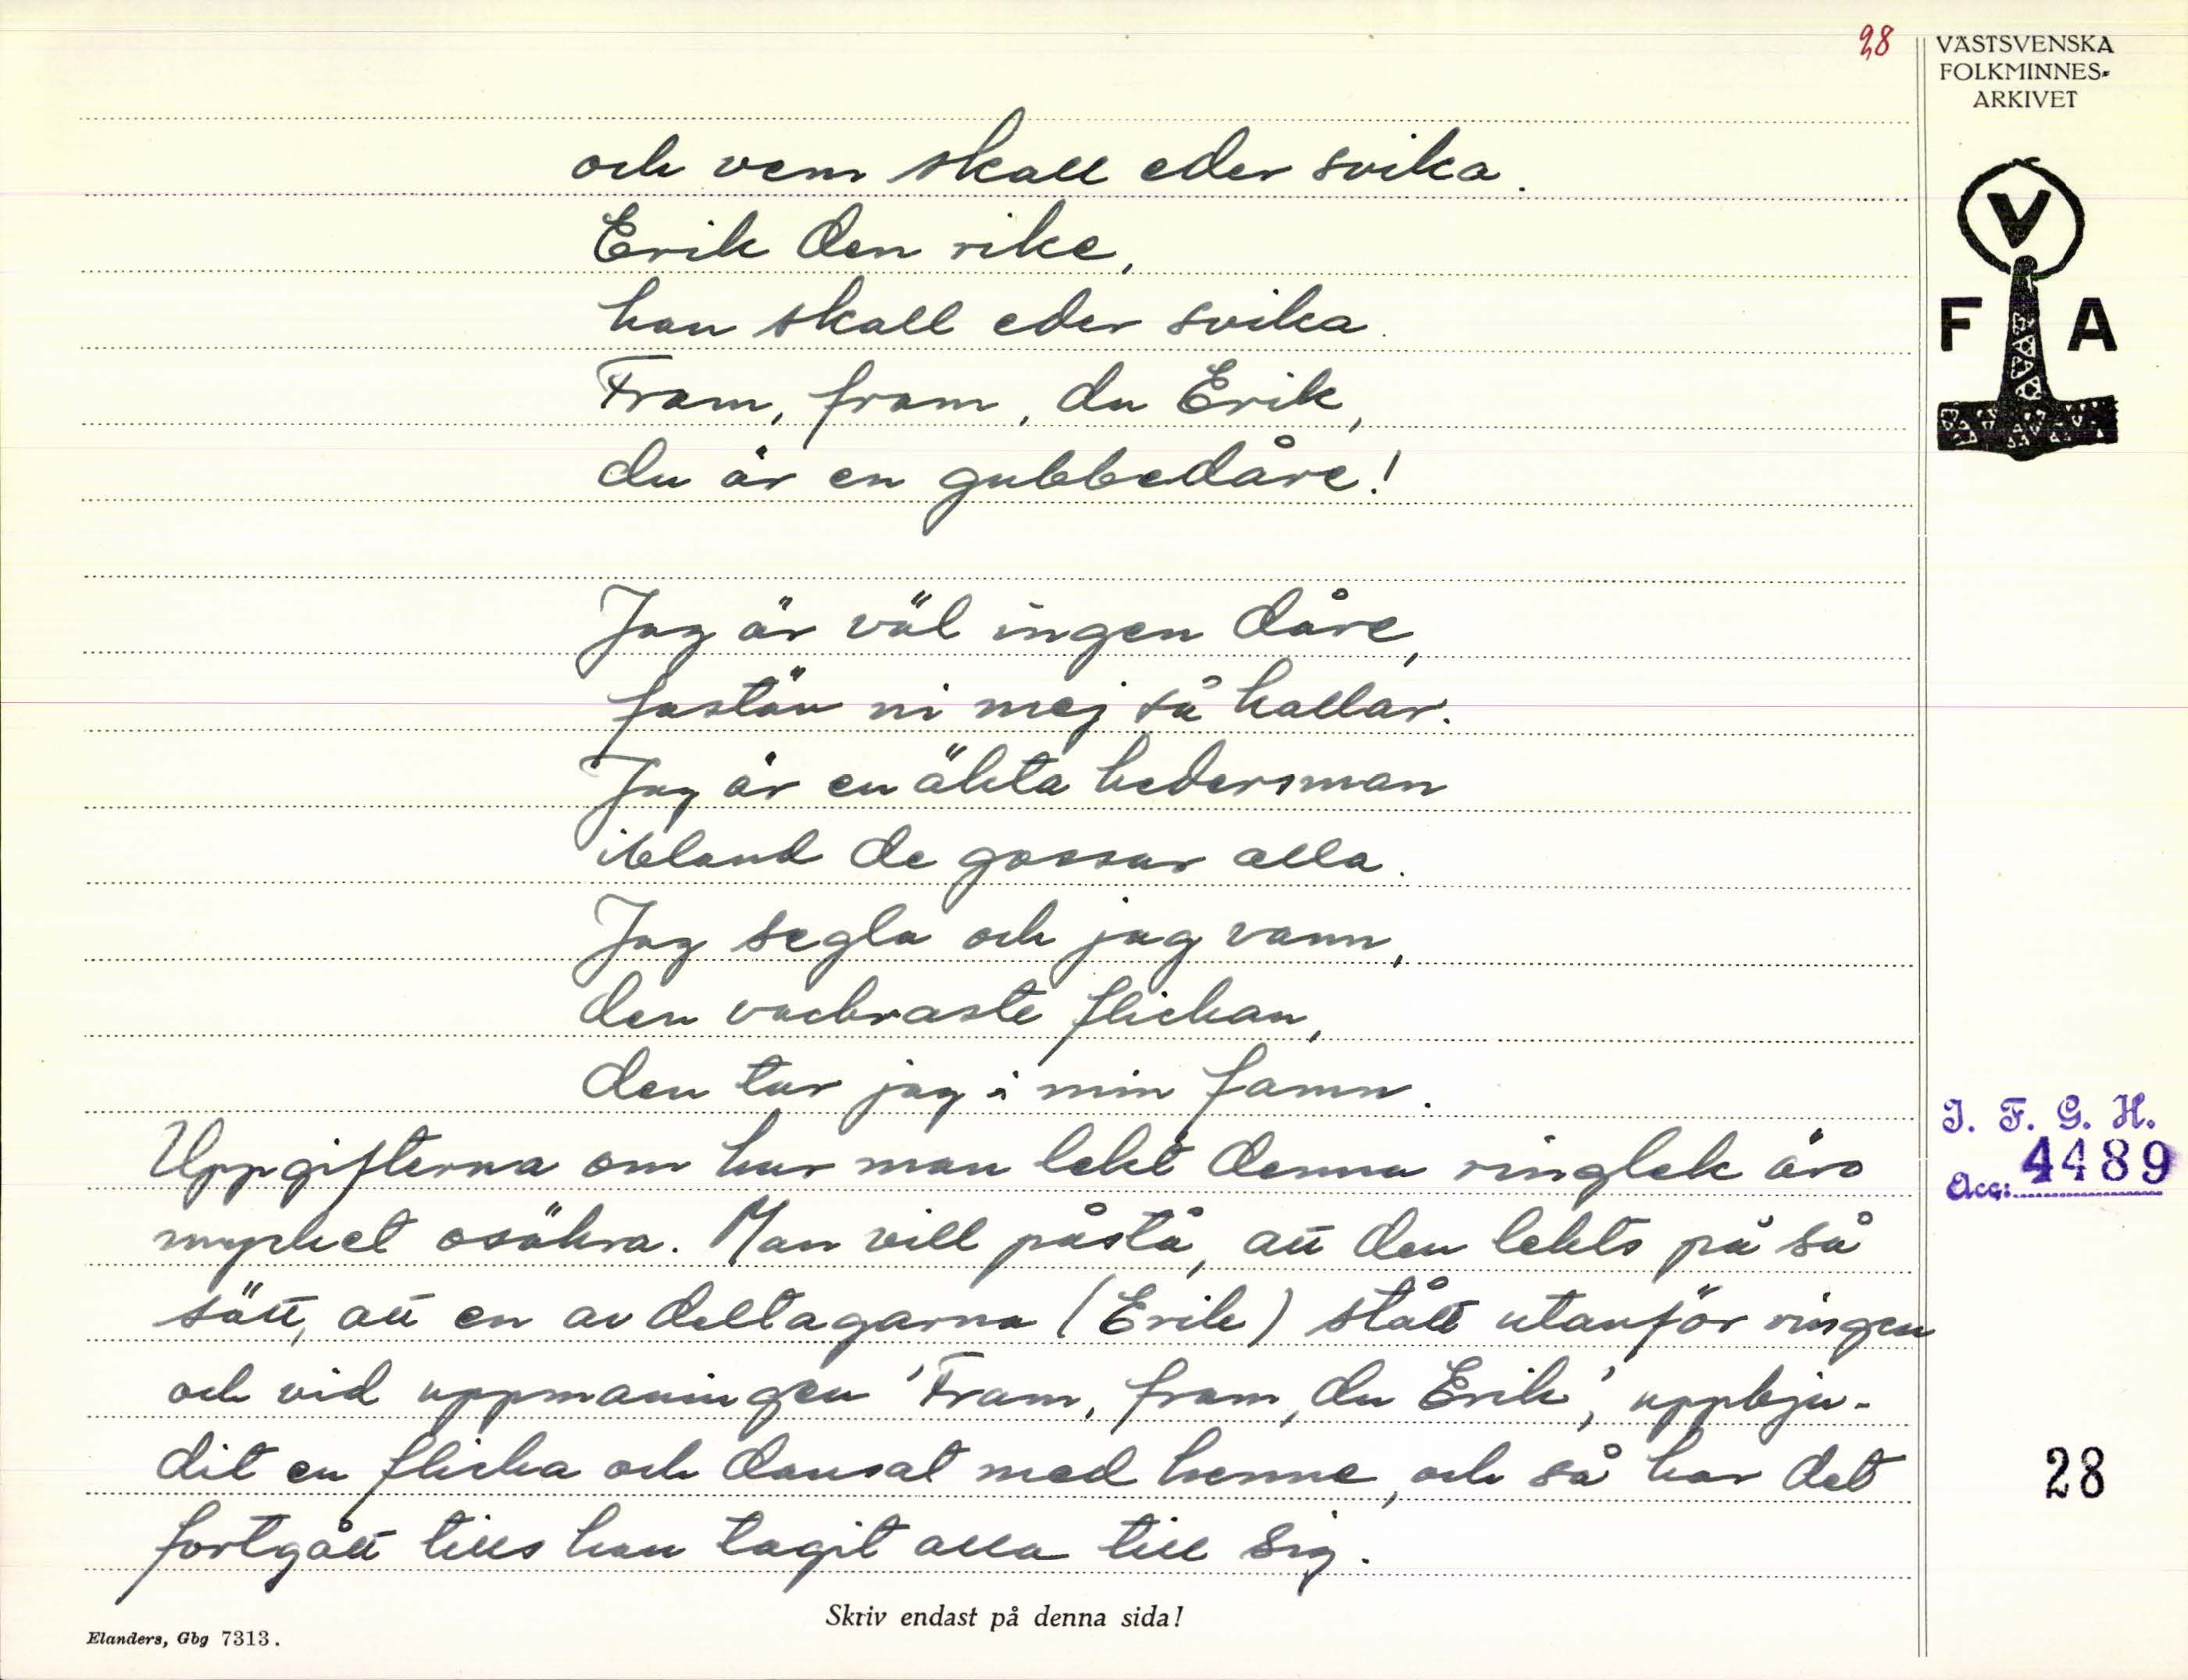 28
VÄSTSVENSKA
FOLKMINNES=
ARKIVET
V
F A
och vem skall eder svika.
Erik den rike,
han skall eder svika.
Fram, fram, du Erik,
du är en gubbedåre!
Jag är väl ingen dåre,
fastän ni mej så kallar.
Jag är en äkta hedersman
ibland de gossar alla.
Jag segla och jag vann,
den vackraste flickan,
den tar jag i min famn.
Uppgifterna om hur man lekt denna ringlek äro
mycket osäkra. Man vill påstå, att den lekts på så
sätt, att en av deltagarna (Erik) stått utanför ringen
och vid uppmaningen 'Fram, fram, du Erik', uppbju-
dit en flicka och dansat med henne, och så har det
fortgått tills han tagit alla till sig.
I. F. G. H.
Acc: 4489
28
Skriv endast på denna sida!
Elanders, Gbg 7313.